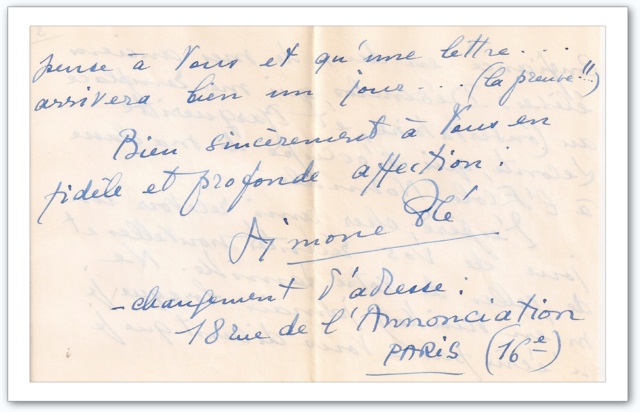 pense à Vous et qu'une lettre....
arrivera bien un jour.... (la preuve!!)
Bien sincèrement à Vous en
fidèle et profonde affection:
Simone Plé
- changement d'adresse:
18 rue de l'Annonciation
PARIS (16e)